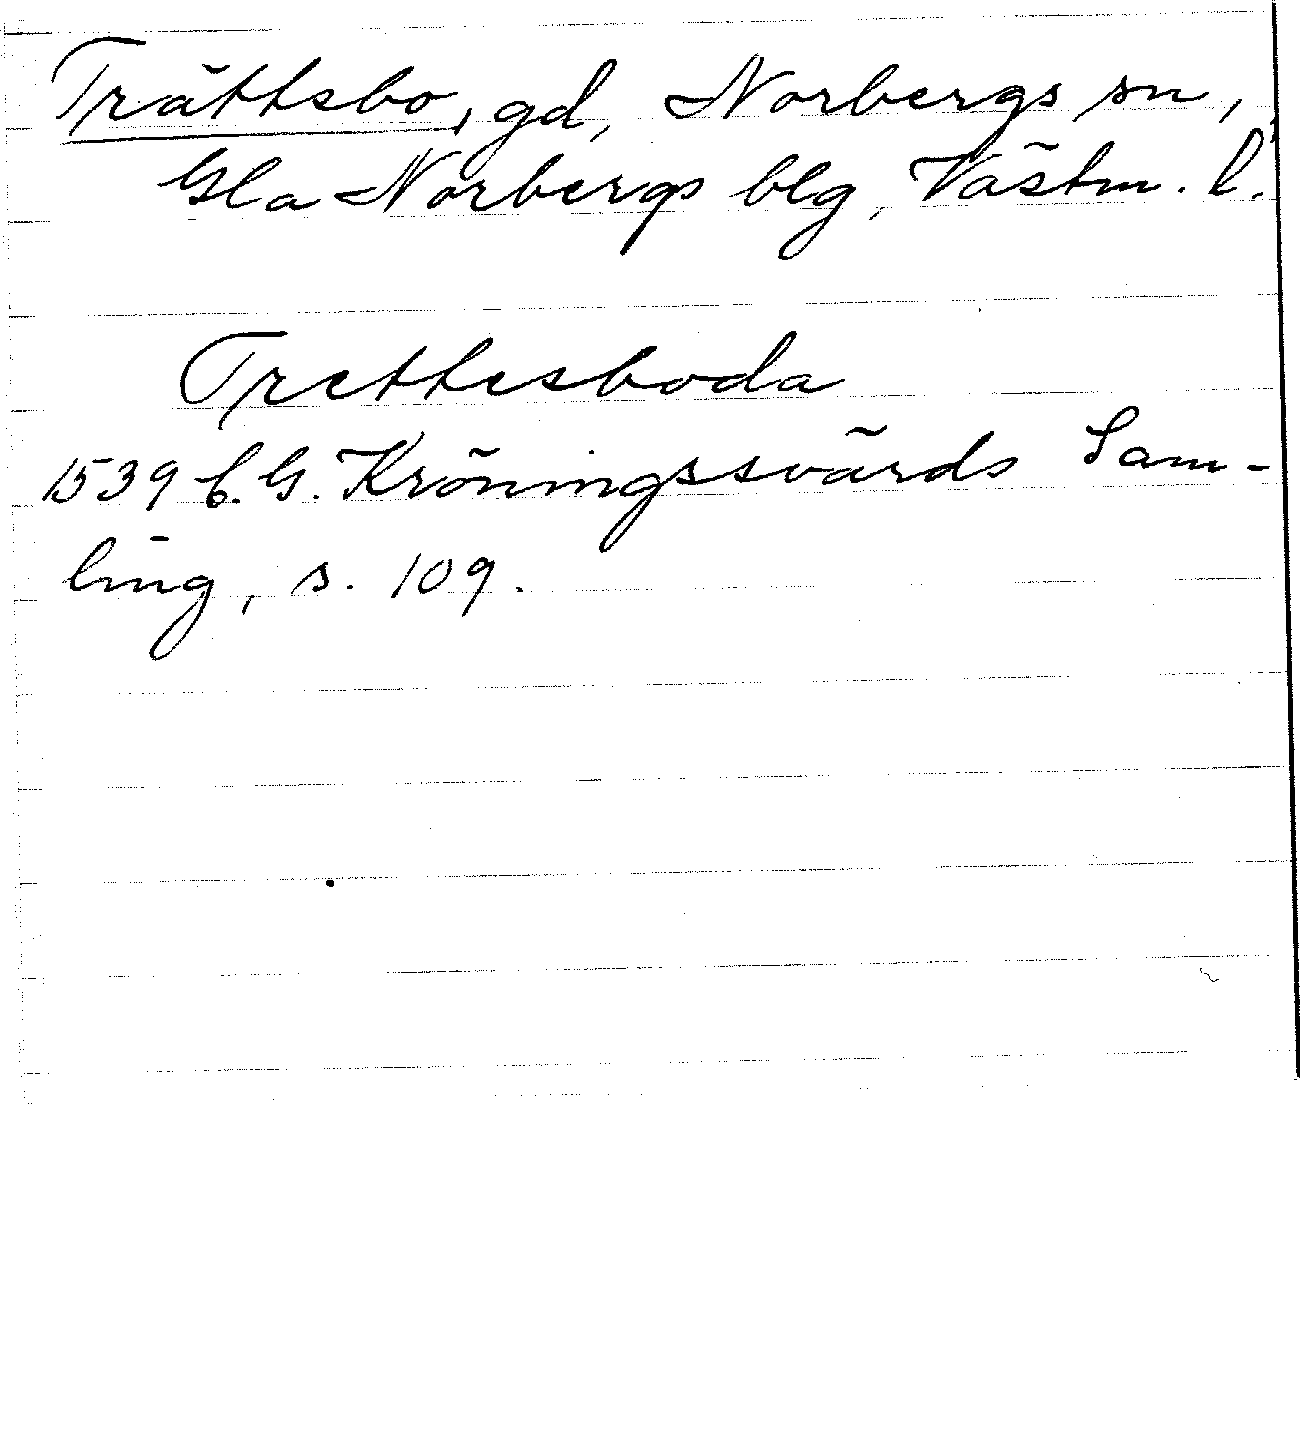 Trättsbo, gd, Norbergs sn,
Gla Norbergs blg, Västm. l.
Trettesboda
1539 C. G. Kröningssvärds Sam-
ling, s. 109.